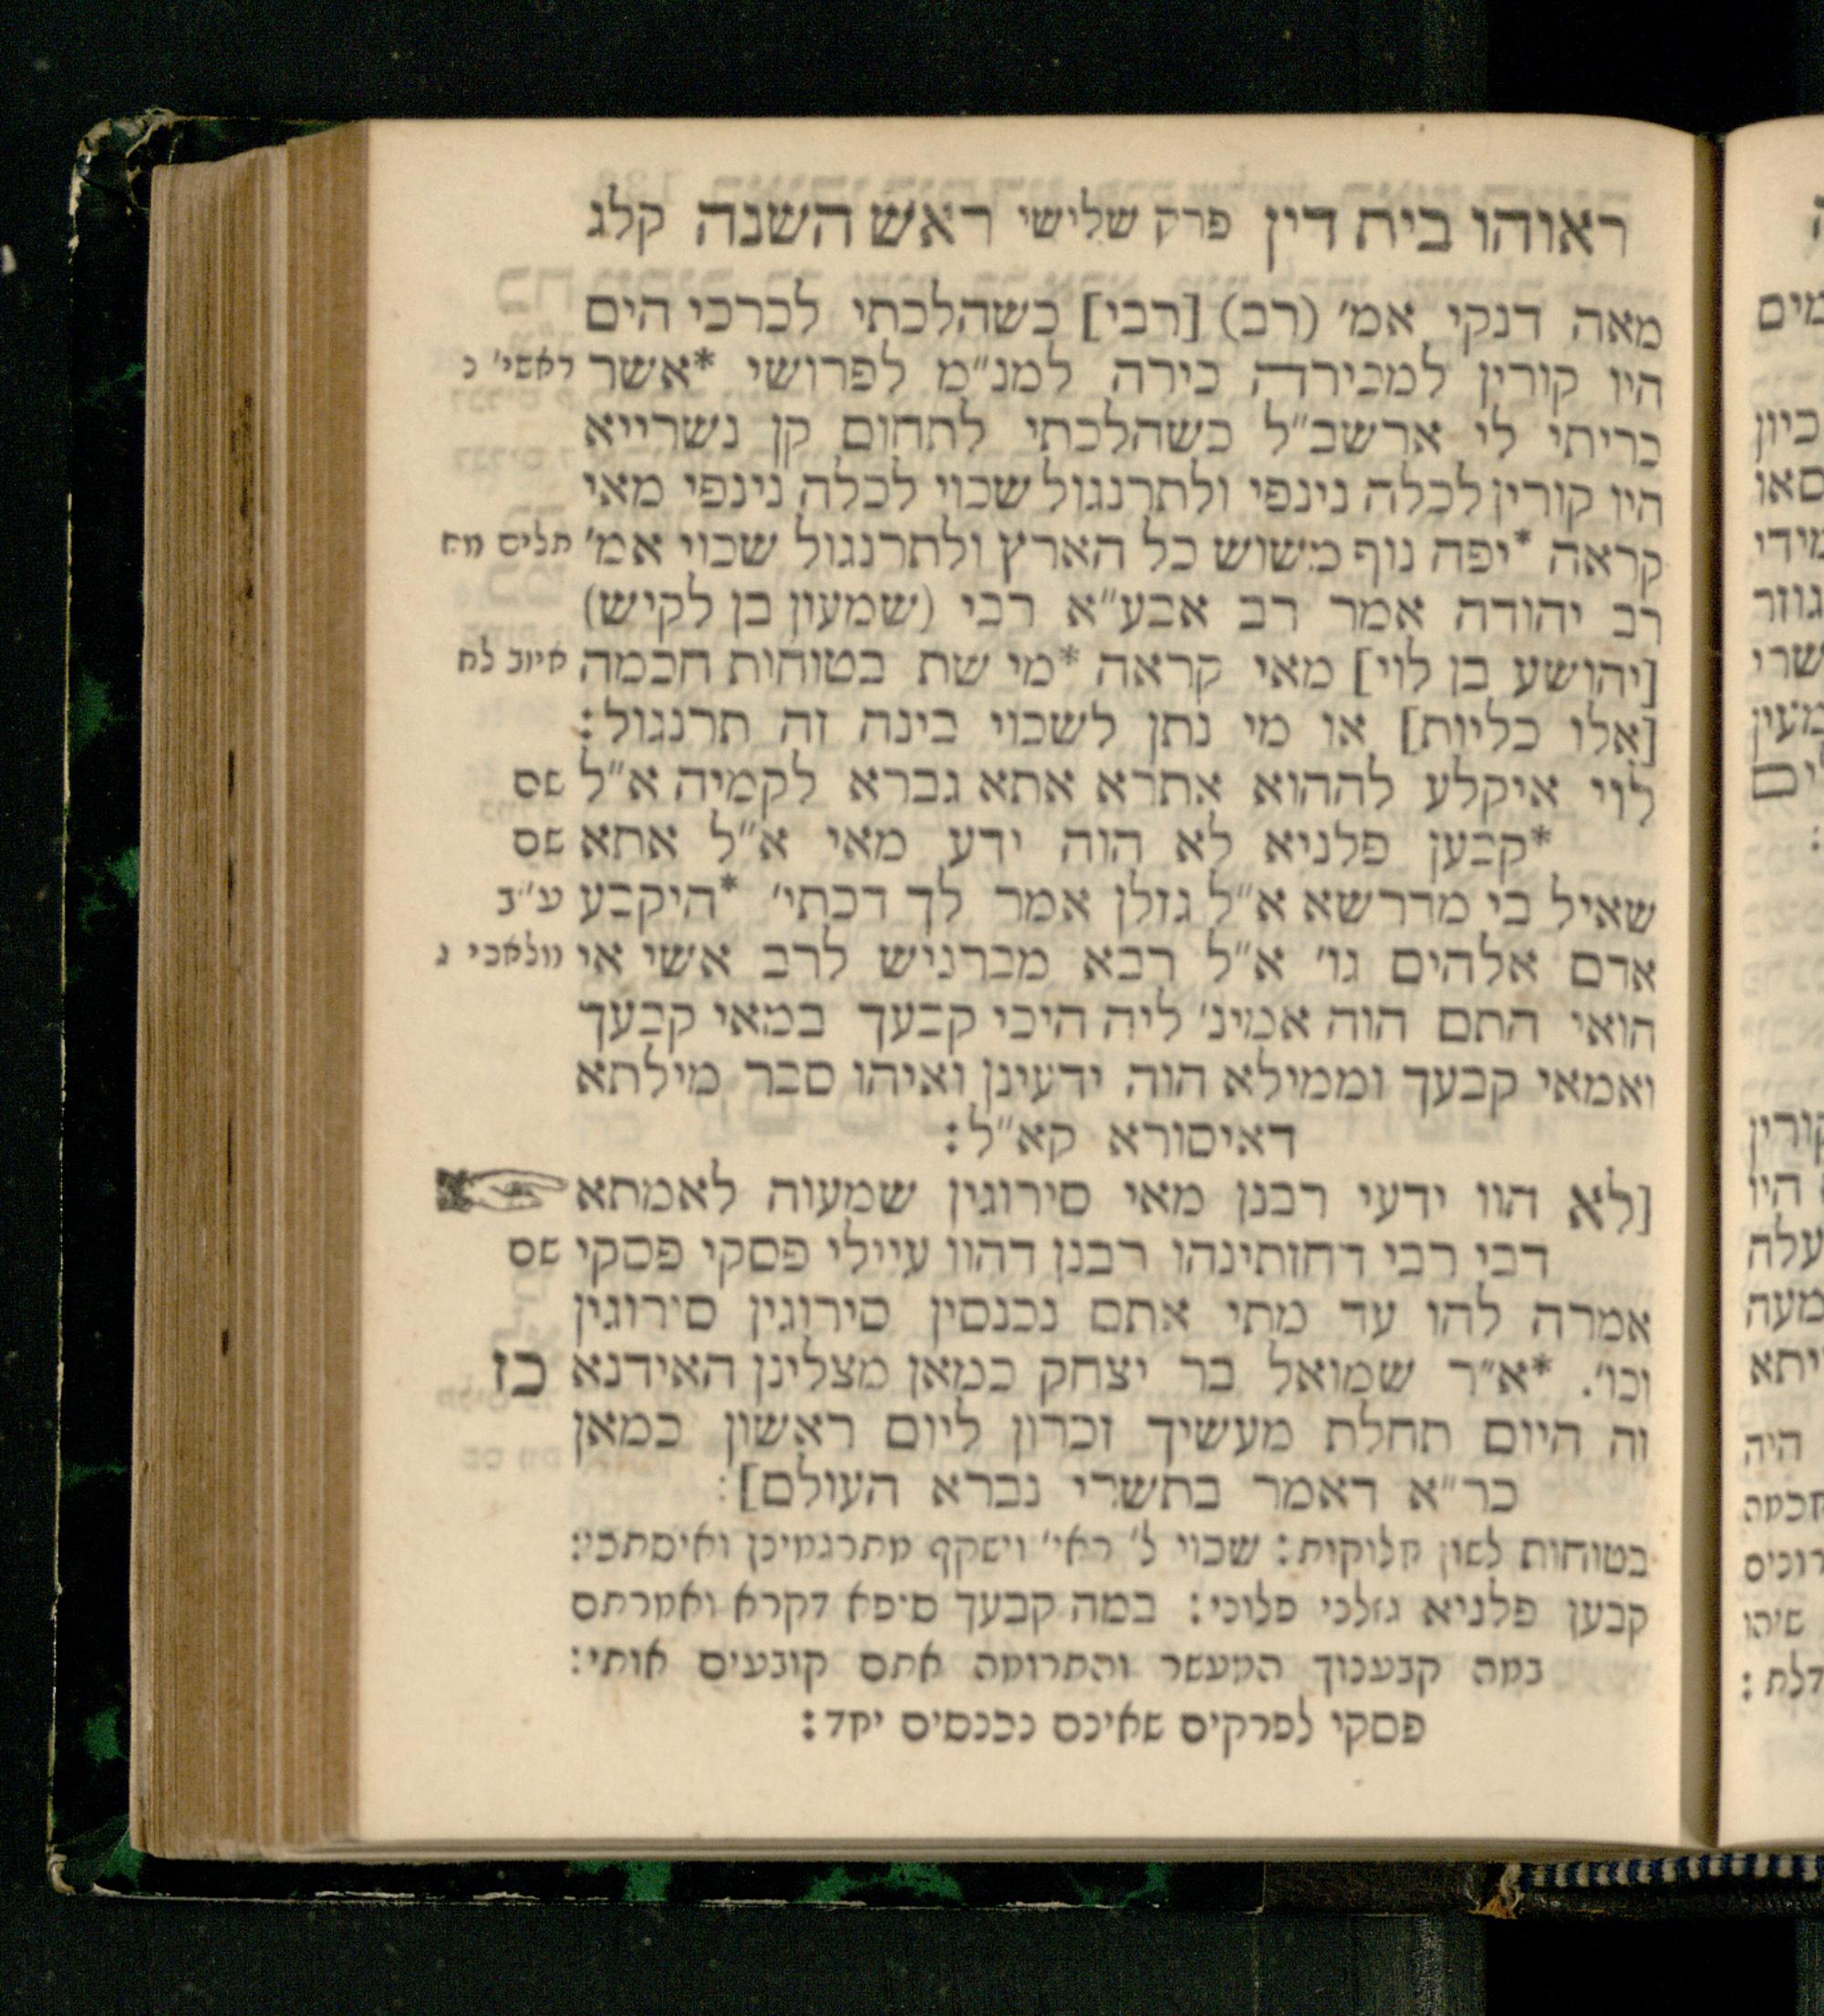 ראוהו בית דין פרק שלישי ראש השנה קלג
מאה דנקי אמ׳ (רב) [רבי] כשהלכתי לכרכי הים
היו קורין למכירה כירה למנ״מ לפרושי *אשר ראשי׳ נ
כריתי לי ארשב״ל כשהלכתי לתחום קן נשרייא
היו קורין לכלה נינפי ולתרנגול שכוי לכלה נינפי מאי
קראה *יפה נוף משוש כל הארץ ולתרנגול שכוי אמ׳ תלים מח
רב יהודה אמר רב אבע״א רבי (שמעון בן לקיש)
[יהושע בן לוי] מאי קראה *מי שת בטוחות חכמה איוב לח
[אלו כליות] או מי נתן לשכוי בינה זה תרנגול:
לוי איקלע לההוא אתרא אתא גברא לקמיה א״ל שם
*קבען פלניא לא הוה ידע מאי א״ל אתא שם
שאיל בי מדרשא א״ל גזלן אמר לך דכתי׳ *היקבע ע״ב
אדם אלהים גו׳ א״ל רבא מברניש לרב אשי אי מלאכי ג
הואי התם הוה אמינ׳ ליה היכי קבעך במאי קבעך
ואמאי קבעך וממילא הוה ידעינן ואיהו סבר מילתא
דאיסורא קא״ל:
[לא הוו ידעי רבנן מאי סירוגין שמעוה לאמתא
דבי רבי דחזתינהו רבנן דהוו עיילי פסקי פסקי שם
אמרה להו עד מתי אתם נכנסין סירוגין סירוגין
וכו׳. *א״ר שמואל בר יצחק כמאן מצלינן האידנא כז
זה היום תחלת מעשיך זכרון ליום ראשון כמאן
כר״א דאמר בתשרי נברא העולם]:
בטוחות לשון חלוקות: שכוי ל׳ ראי׳ וישקף מתרגמינן ואיסתכי:
קבען פלניא גזלני פלוני: במה קבעך סיפא דקרא ואמרתם
במה קבענוך המעשר והתרומה אתם קובעים אותי:
פסקי לפרקים שאינם נכנסים יחד: